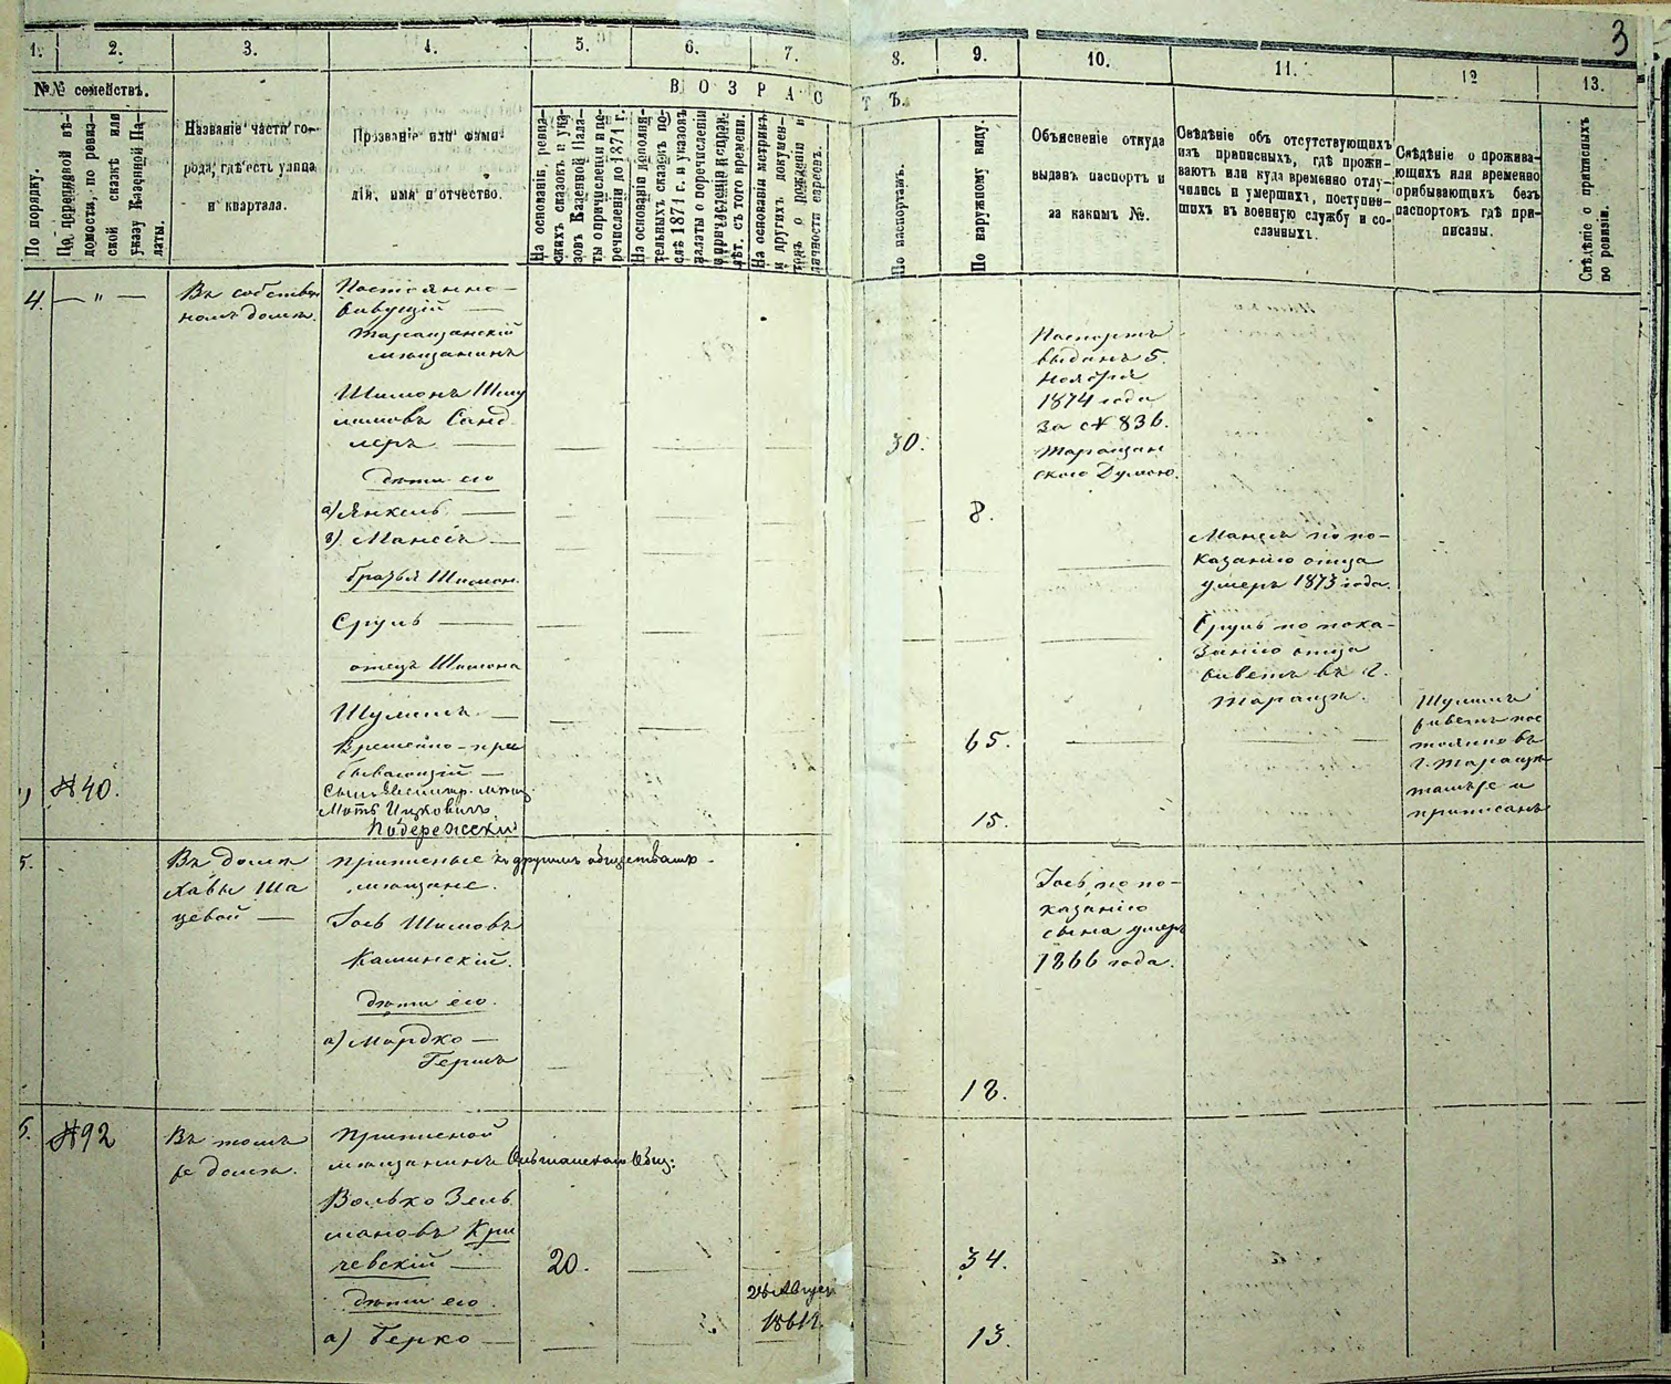 3
1.
2.
3.
4.
5.
6.
7.
8.
9.
10.
11.
12
13.
№№ семействъ.
По порядку.
По переписной вѣ-
домости, по ревиз-
ской сказкѣ или
указу Казенной Па-
латы.
Названіе части го-
рода, гдѣ есть улица
и квартала.
Прозваніе или фами-
лія, имя и отчество.
ВОЗРАСТЪ.
На основаніи, ревиз-
скихъ сказокъ и ука-
зовъ Казенной Пала-
ты о причисленіи и пе-
речисленіи до 1871 г.
На основаніи дополни-
тельныхъ сказокъ по-
слѣ 1871 г. и указовъ
палаты о перечисленіи
и причисленіи и справ.
лѣт. съ того времени.
На основаніи метрикъ
и другихъ докумен-
товъ о рожденіи и
личности евреевъ.
По паспортамъ.
По наружному виду.
Объясненіе откуда
выданъ паспортъ и
за какимъ №.
Свѣдѣніе объ отсутствующихъ
изъ приписныхъ, гдѣ прожи-
ваютъ или куда временно отлу-
чились и умершихъ, поступив-
шихъ въ военную службу и со-
сланныхъ.
Свѣдѣніе о прожива-
ющихъ или временно
прибывающихъ безъ
паспортовъ гдѣ при-
писаны.
Свѣдѣніе о приписныхъ
по ревизіи.
4.
— " —
Въ собствен
номъ домѣ.
Постоянно-
живущій —
Таращанскій
мѣщанинъ
Шимонъ Шму
лимовъ Санд
леръ —
30.
Паспортъ
выданъ 5.
Ноября
1874 года
за № 836.
Таращан
скою Думою.
дѣти его
а) Янкель —
8.
в) Мансiй —
Мансiй по по-
казанію отца
умеръ 1873 года.
братья Шимон.
Сруль —
Сруль по пока-
занію отца
живетъ въ г.
Таращѣ.
отецъ Шимона
Шулимъ —
65.
Шулимъ
живетъ пос
тоянно въ
г. Таращѣ
тамъ же и
приписанъ
№40.
Временно-пре
бывающій —
Мотъ Ицковичъ
Побережскій
15.
5.
Въ домѣ
Хавы Ша
цевой —
Приписные къ другимъ обществамъ
мѣщане.
Іось Шимовъ
Каминскій.
Іось по по-
казанію
сына умеръ
1866 года.
дѣти его.
а) Мордко —
Гершъ
18.
6.
№92
Въ томъ
же домѣ.
Приписной
мѣщанинъ Ольшанскаго Общ:
Волько Зель
мановъ Кри
чевскій —
20.
34.
дѣти его.
а) Берко —
28 Август
1861 г.
13.